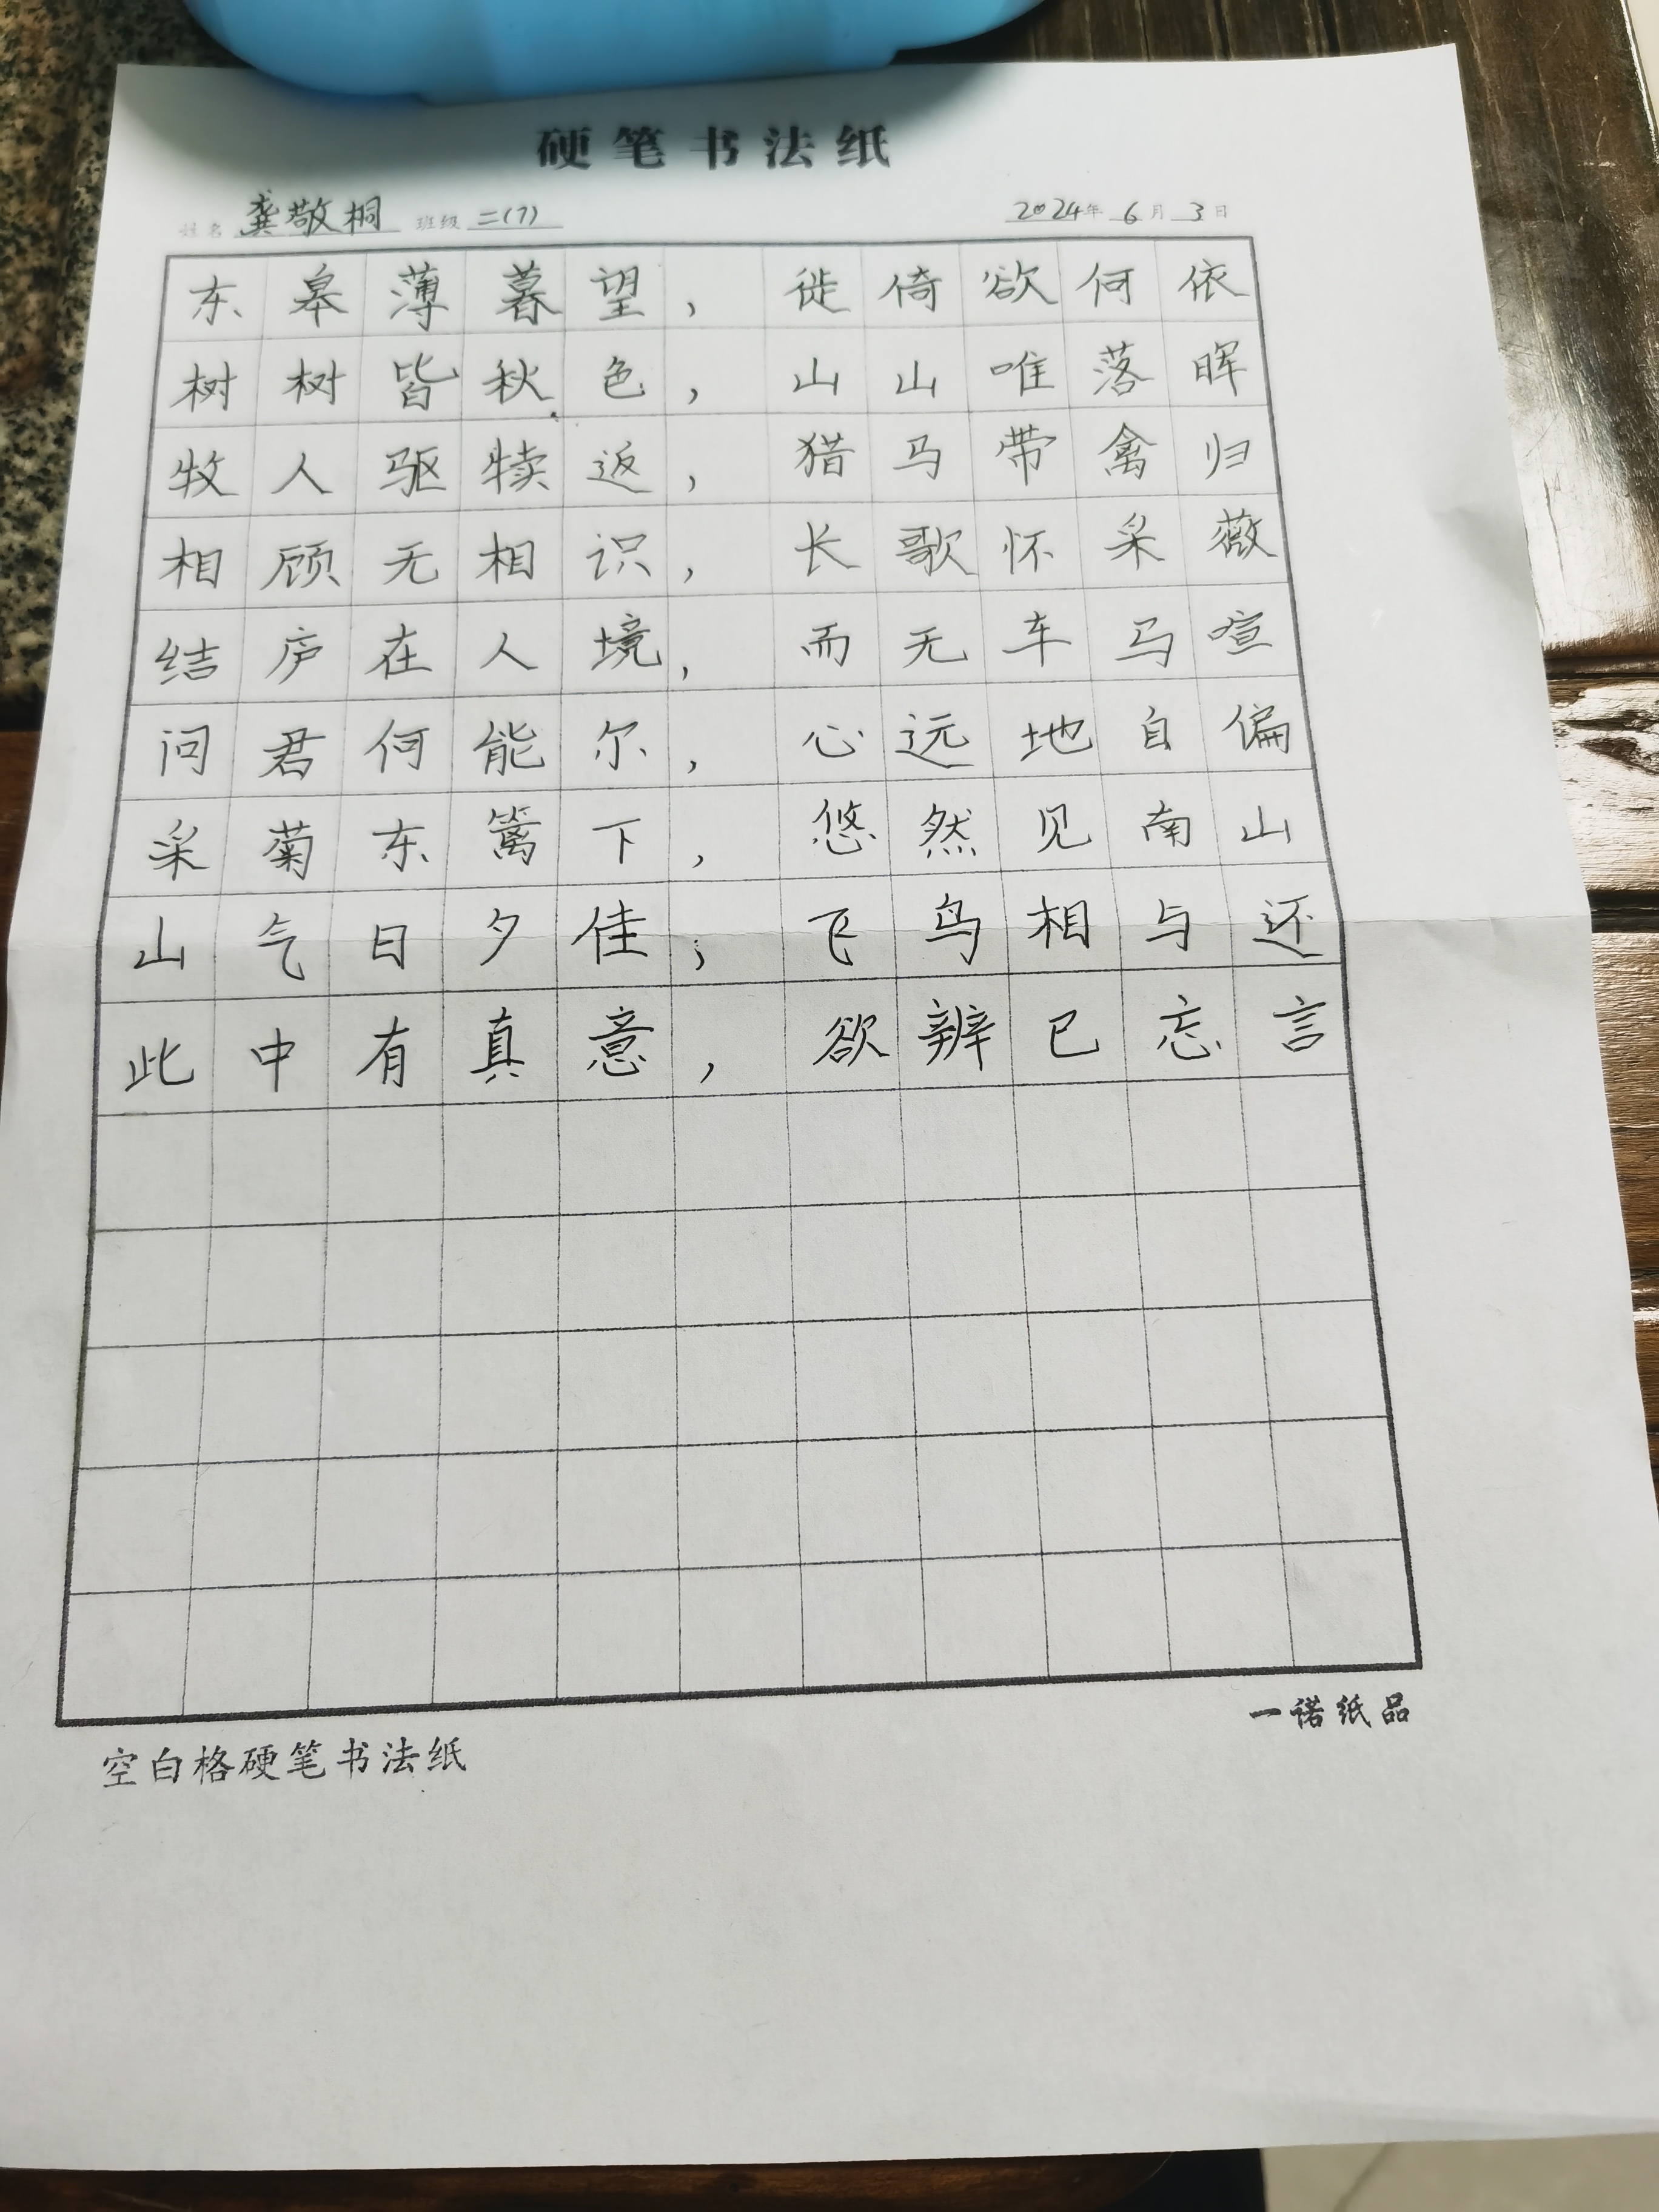 硬笔书法纸
姓名 龚敬桐 班级 二(7) 2024年 6月 3日
东皋薄暮望，徙倚欲何依
树树皆秋色，山山唯落晖
牧人驱犊返，猎马带禽归
相顾无相识，长歌怀采薇
结庐在人境，而无车马喧
问君何能尔，心远地自偏
采菊东篱下，悠然见南山
山气日夕佳；飞鸟相与还
此中有真意，欲辨已忘言
一诺纸品
空白格硬笔书法纸